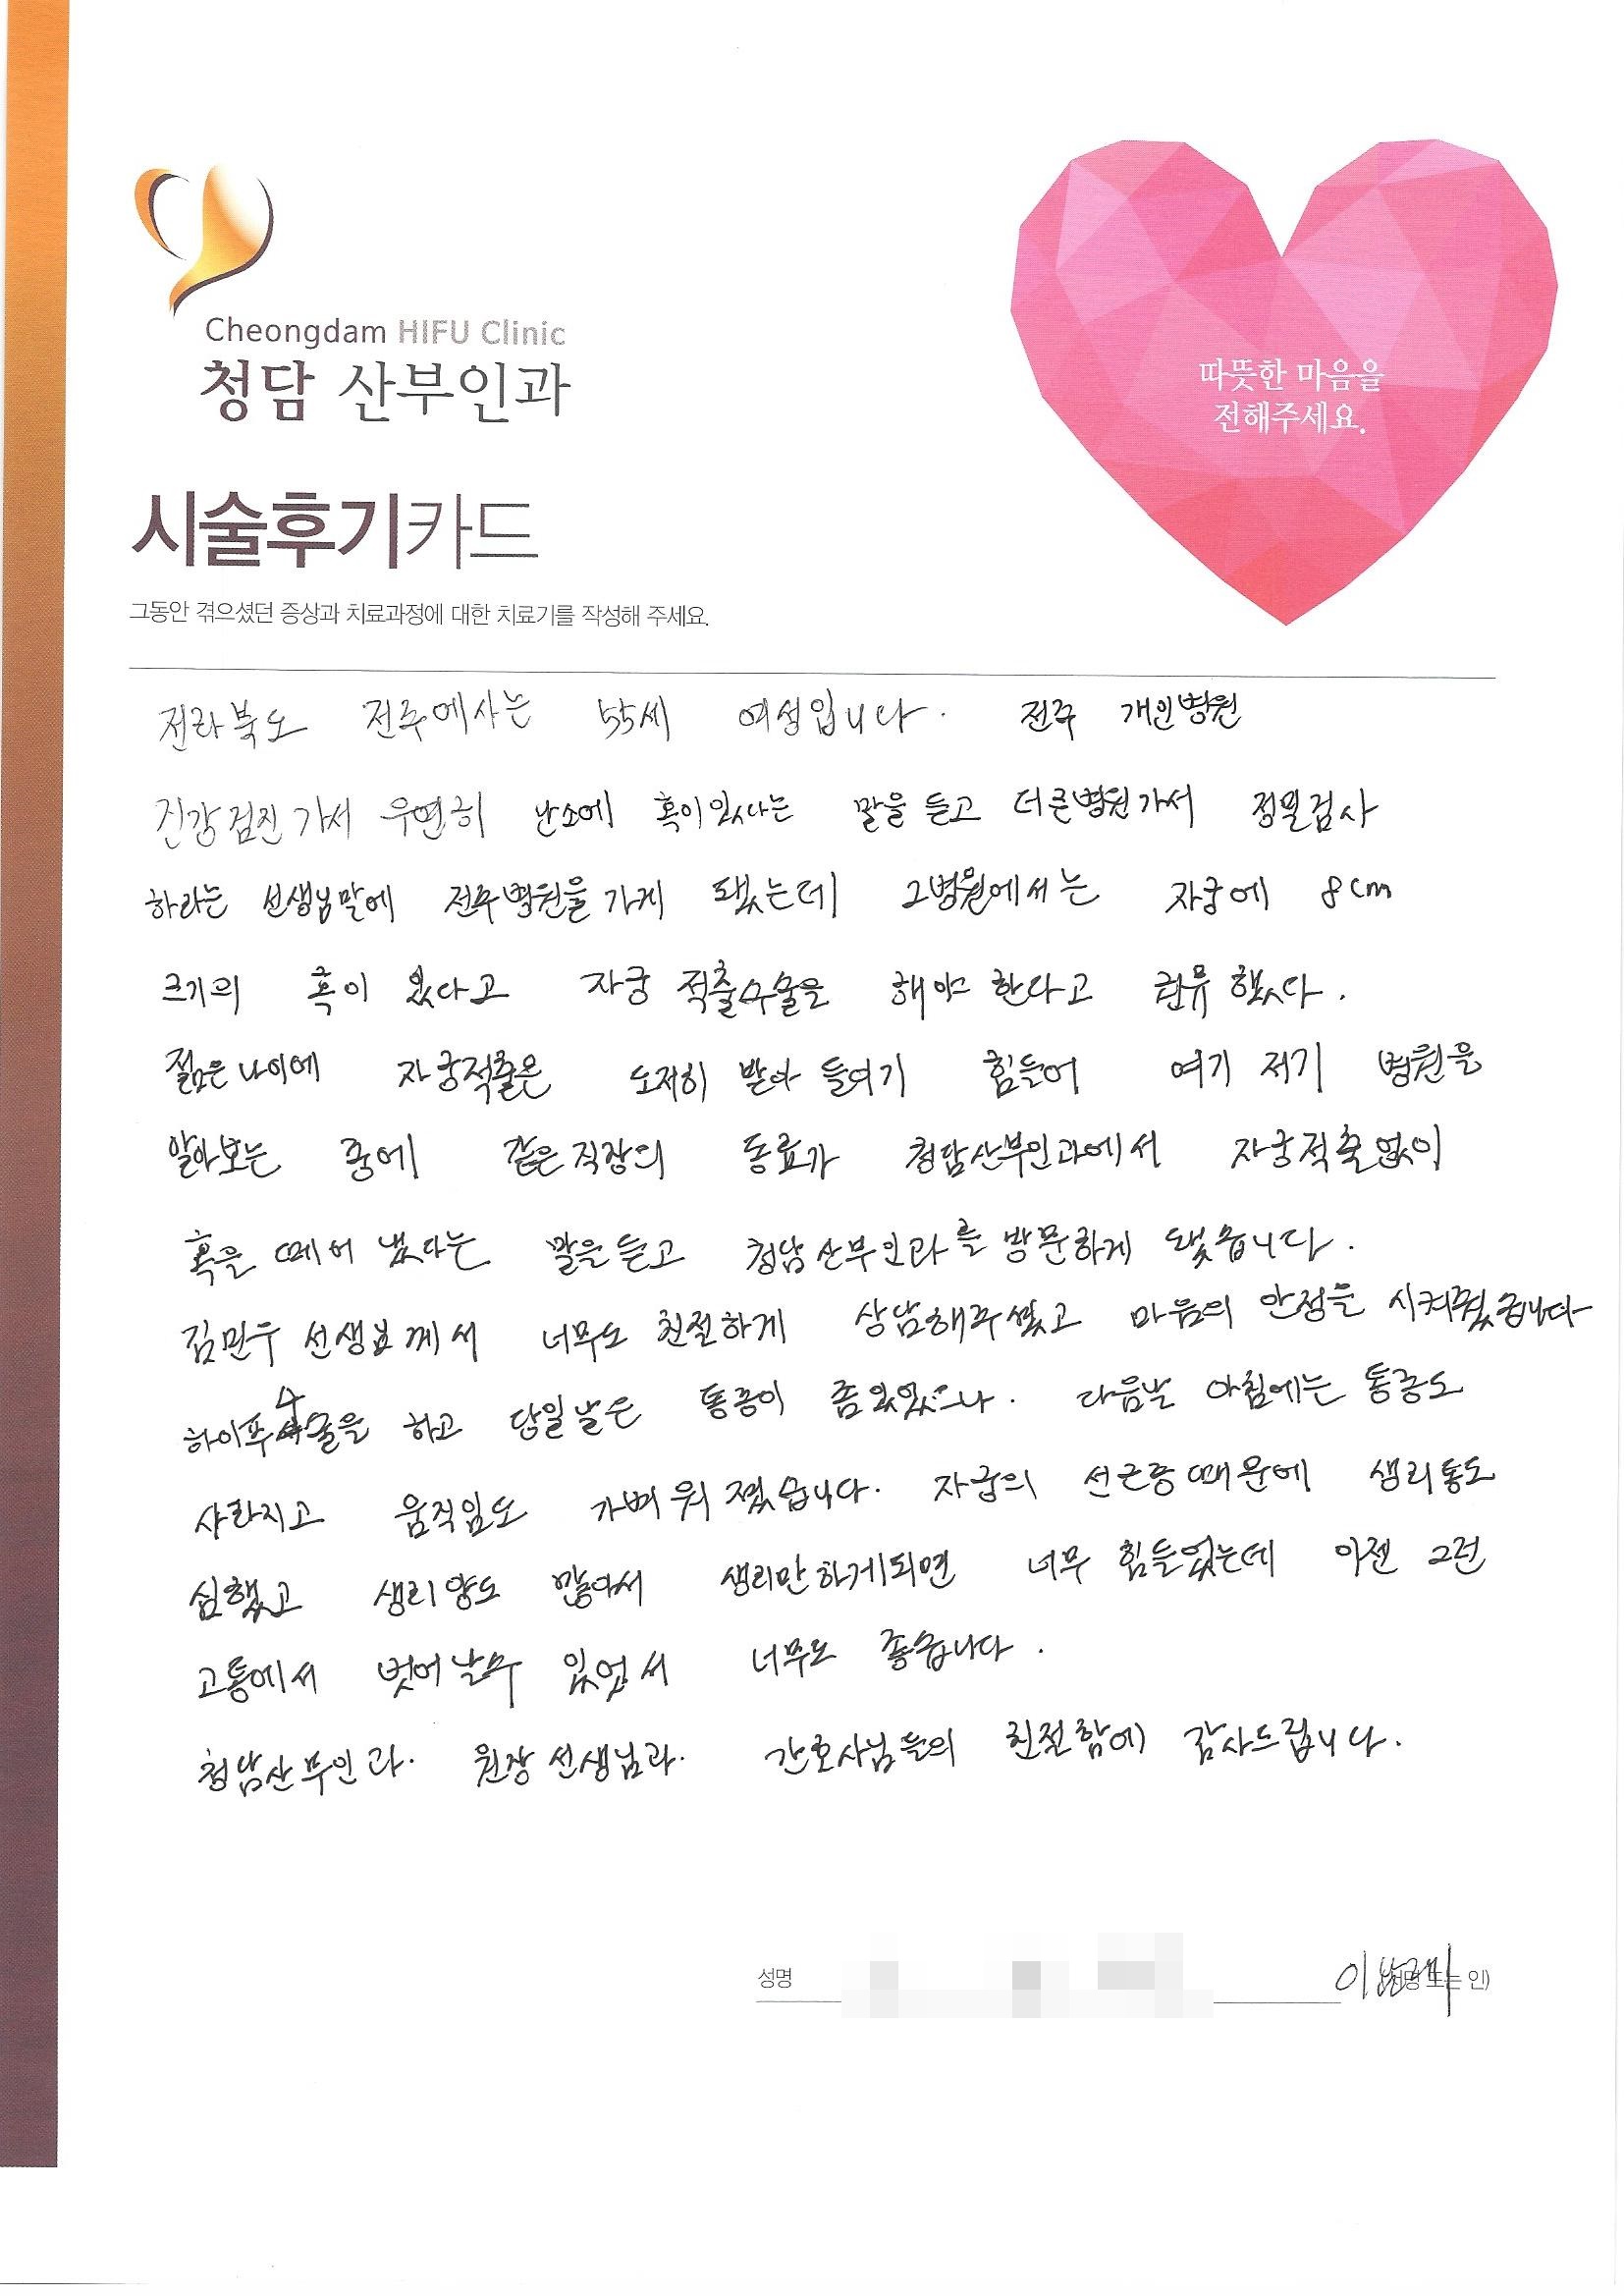 Cheongdam HIFU Clinic
청담 산부인과
따뜻한 마음을
전해주세요.
시술후기카드
그동안 겪으셨던 증상과 치료과정에 대한 치료기를 작성해 주세요.
전라북도 전주에사는 55세 여성입니다. 전주 개인병원
건강검진가서 우연히 난소에 혹이있다는 말을 듣고 더큰병원가서 정밀검사
하라는 선생님말에 전주병원을 가게 됐는데 그병원에서는 자궁에 8cm
크기의 혹이 있다고 자궁 적출수술을 해야 한다고 권유 했다.
젊은나이에 자궁적출은 도저히 받아 들이기 힘들어 여기 저기 병원을
알아보는 중에 같은직장의 동료가 청담산부인과에서 자궁적출없이
혹을 떼어 냈다는 말을듣고 청담산부인과를 방문하게 됐습니다.
김민우 선생님께서 너무도 친절하게 상담해주셨고 마음의 안정을 시켜줬습니다
하이푸수술을 하고 당일날은 통증이 좀있었으나. 다음날 아침에는 통증도
사라지고 움직임도 가벼워 졌습니다. 자궁의 선근증때문에 생리통도
심했고 생리양도 많아서 생리만하게되면 너무 힘들었는데 이젠 그런
고통에서 벗어날수 있어서 너무도 좋습니다.
청담산부인과. 원장선생님과. 간호사님들의 친절함에 감사드립니다.
성명 인)